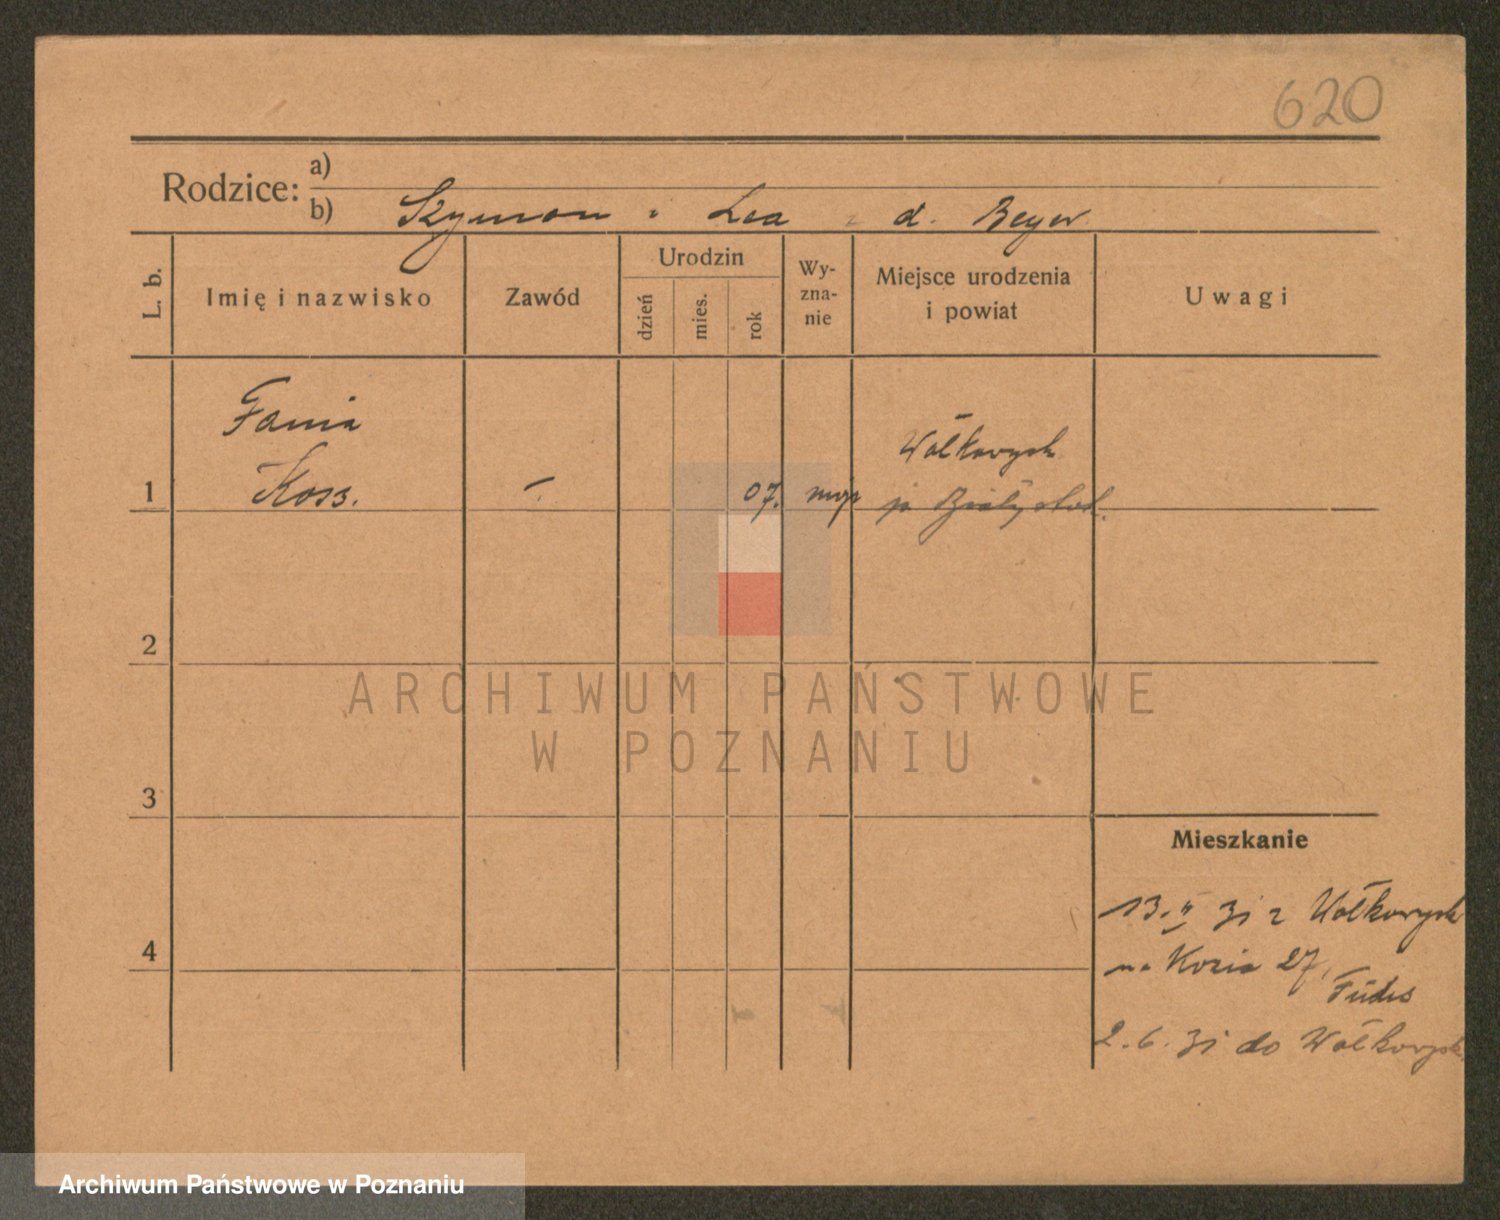 620
Rodzice: a)
b) Szymon i Lea z d. Beyer
L. b.
Imię i nazwisko
Zawód
Urodzin
dzień
mies.
rok
Wy-
zna-
nie
Miejsce urodzenia
i powiat
Uwagi
Fania
Koss.
1
-.
07.
mojż
Wołkowysk
p. Białystok.
2
ARCHIWUM PAŃSTWOWE
W POZNANIU
3
Mieszkanie
13. II 31 z Wołkowysk
na Kozia 27,
2. 6. 31 do Wołkowysk
4
Archiwum Państwowe w Poznaniu